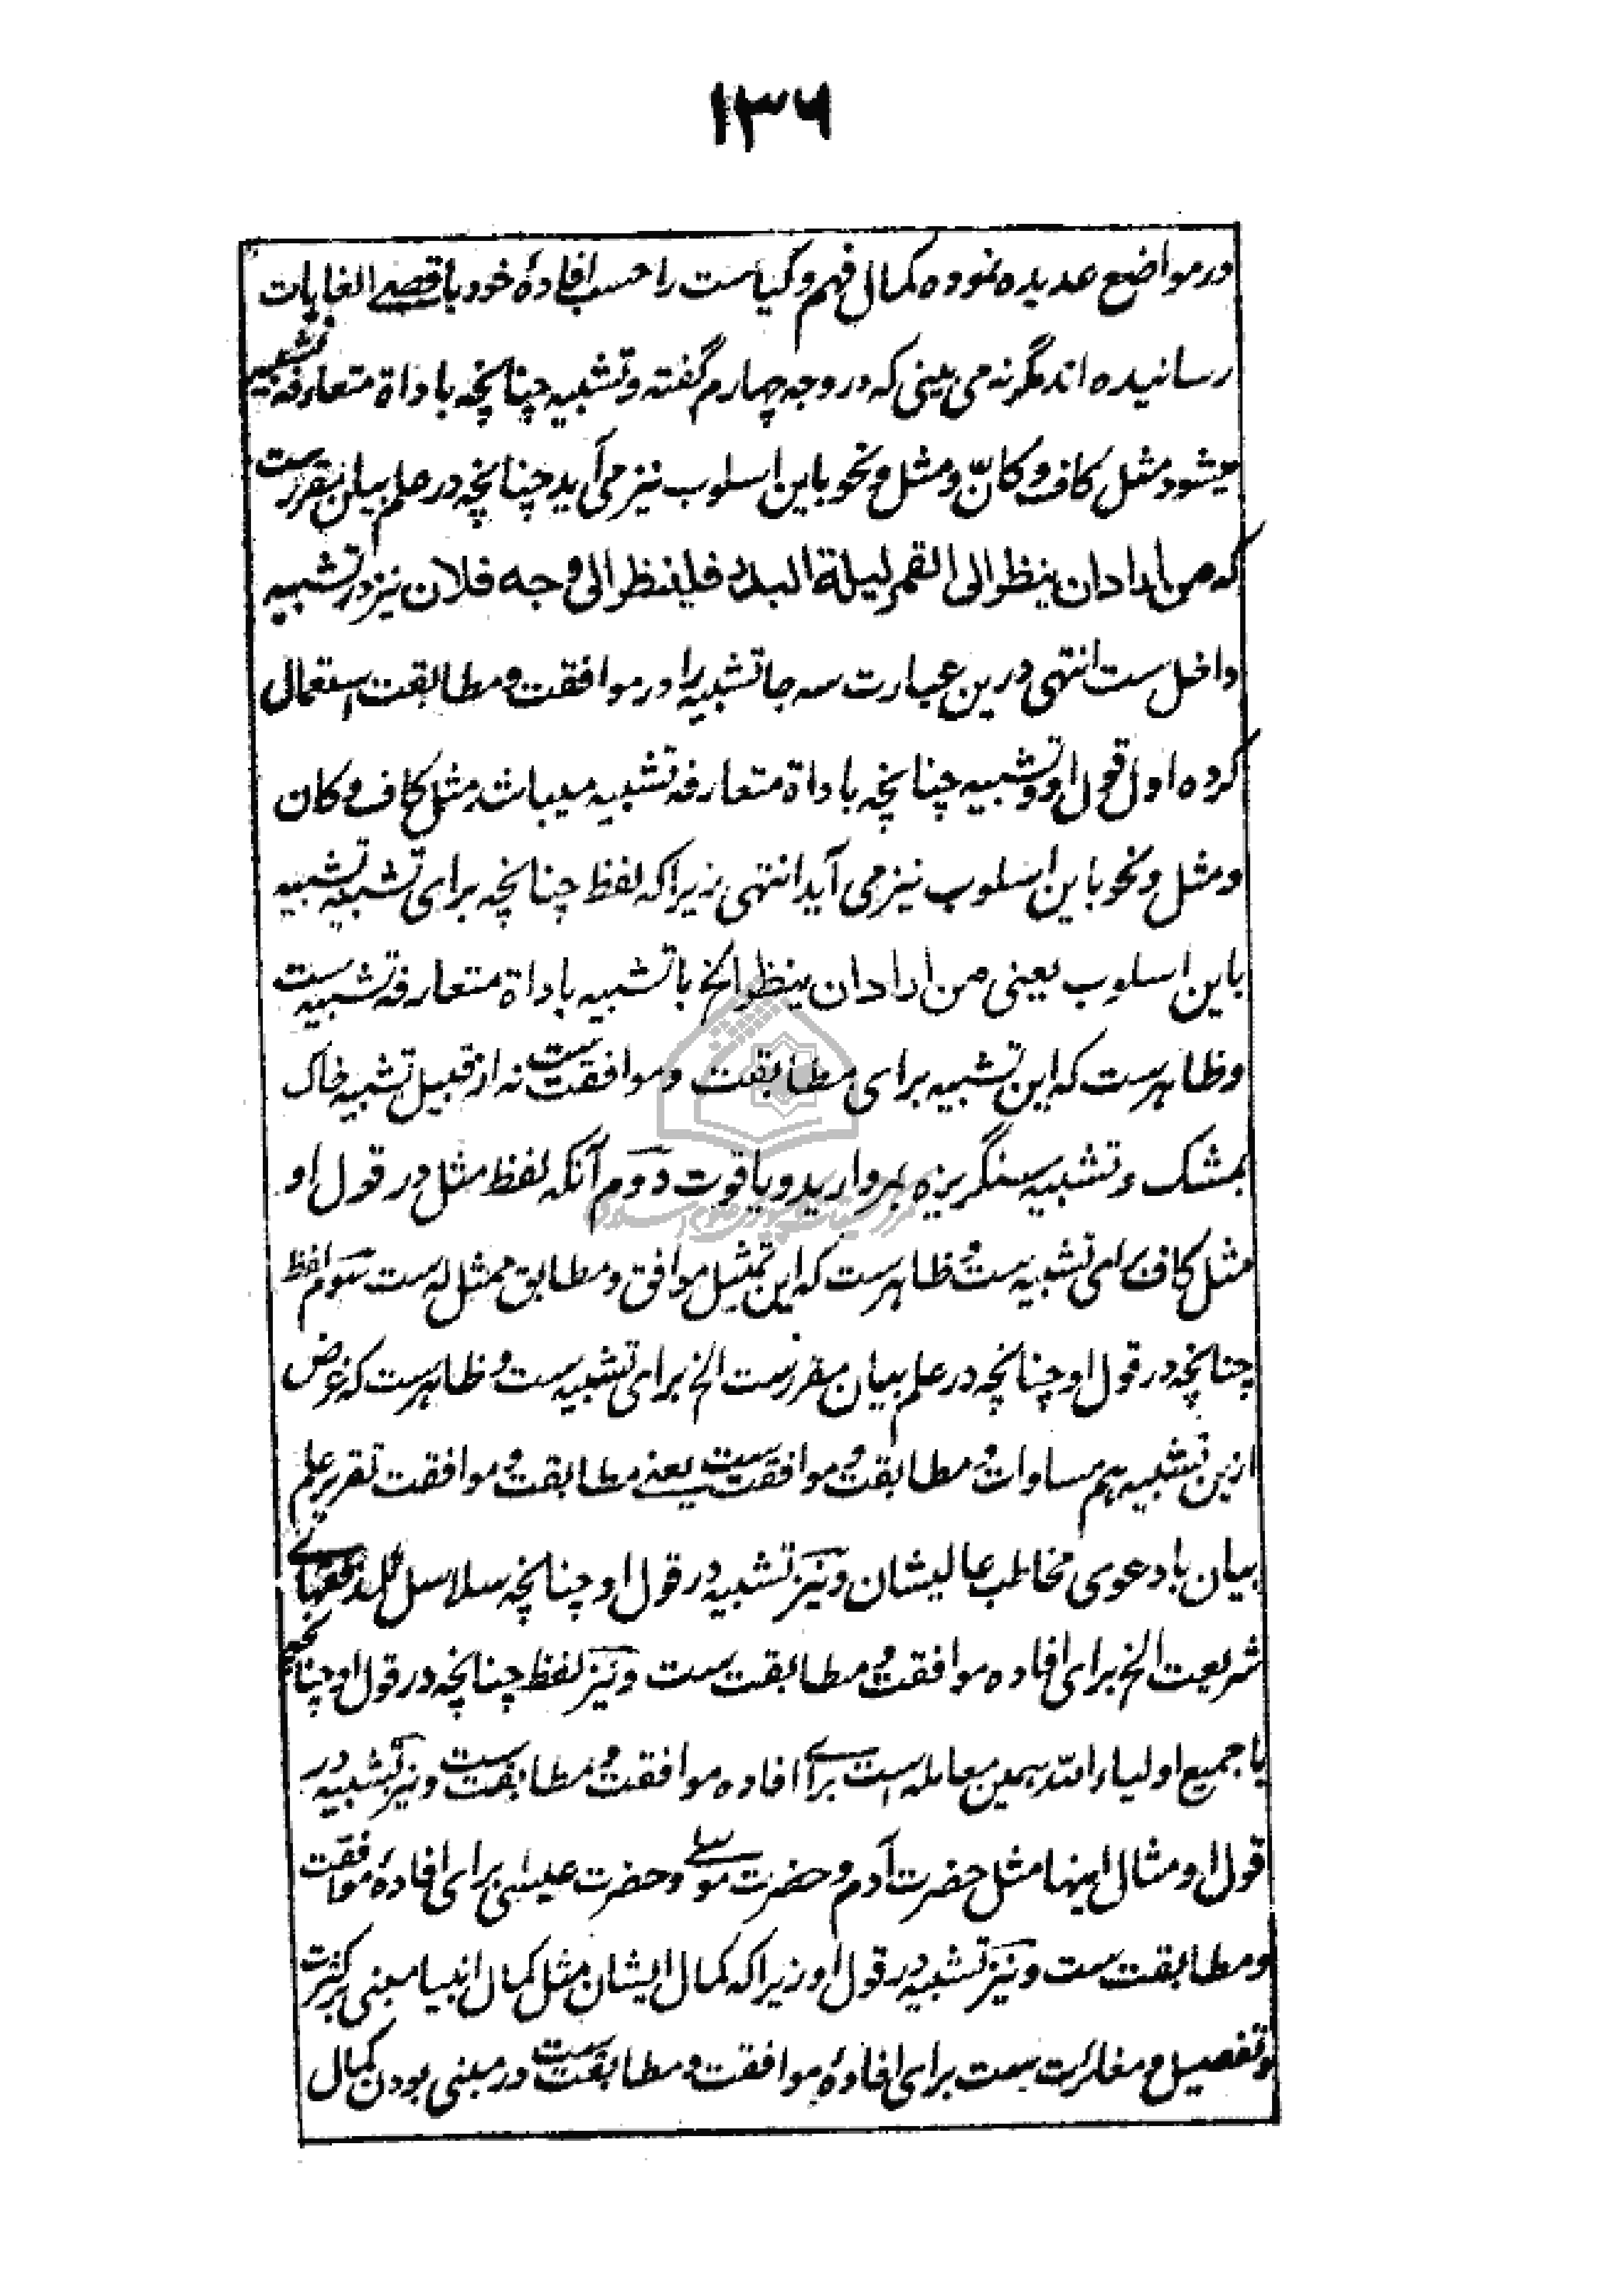 ۱۳۶
در مواضع عدیده نموده کمال فهم و کیاست را حسب افادهٔ خود باقصے الغایات
رسانیده اند مگر نه می بینی که در وجه چهارم گفته و تشبیه چنانچه باداة متعارفه تشبیه
میشود مثل کاف و کانّ و مثل و نحو باین اسلوب نیز می آید چنانچه در علم بیان مقررست
که من اراد ان ینظر الی القمر لیلة البدر فلینظر الی وجه فلان نیز در تشبیه
داخل ست انتهی درین عبارت سه جا تشبیه را در موافقت و مطابقت استعمال
کرده اول قول او و تشبیه چنانچه باداة متعارفه تشبیه میباشد مثل کاف و کان
و مثل و نحو باین اسلوب نیز می آید انتهی زیرا که لفظ چنانچه برای تشبیه تشبیه
باین اسلوب یعنی من اراد ان ینظر الخ با تشبیه باداة متعارفه تشبیه ست
و ظاهرست که این تشبیه برای مطابقت و موافقت ست نه از قبیل تشبیه خاک
بمشک و تشبیه سنگریزه بمروارید و یاقوت دوم آنکه لفظ مثل در قول او
مثل کاف برای تشبیه ست و ظاهرست که این تمثیل موافق و مطابق ممثل له ست سوم لفظ
چنانچه در قول او چنانچه در علم بیان مقررست الخ برای تشبیه ست و ظاهرست که غرض
ازین تشبیه هم مساوات و مطابقت و موافقت ست یعنے مطابقت و موافقت تقریر علم
بیان با دعوی مخاطب عالیشان و نیز تشبیه در قول او چنانچه سلاسل فقهاے
شریعت الخ برای افاده موافقت و مطابقت ست و نیز لفظ چنانچه در قول او چنانچه
با جمیع اولیاء الله همین معامله است براے افاده موافقت و مطابقت ست و نیز تشبیه در
قول او مثال اینها مثل حضرت آدم و حضرت موسے و حضرت عیسی برای افادهٔ موافقت
و مطابقت ست و نیز تشبیه در قول او زیرا که کمال ایشان مثل کمال انبیا مبنی بر کثرت
و تفصیل و مغائرت ست برای افادهٔ موافقت و مطابقت ست در مبنی بودن کمال